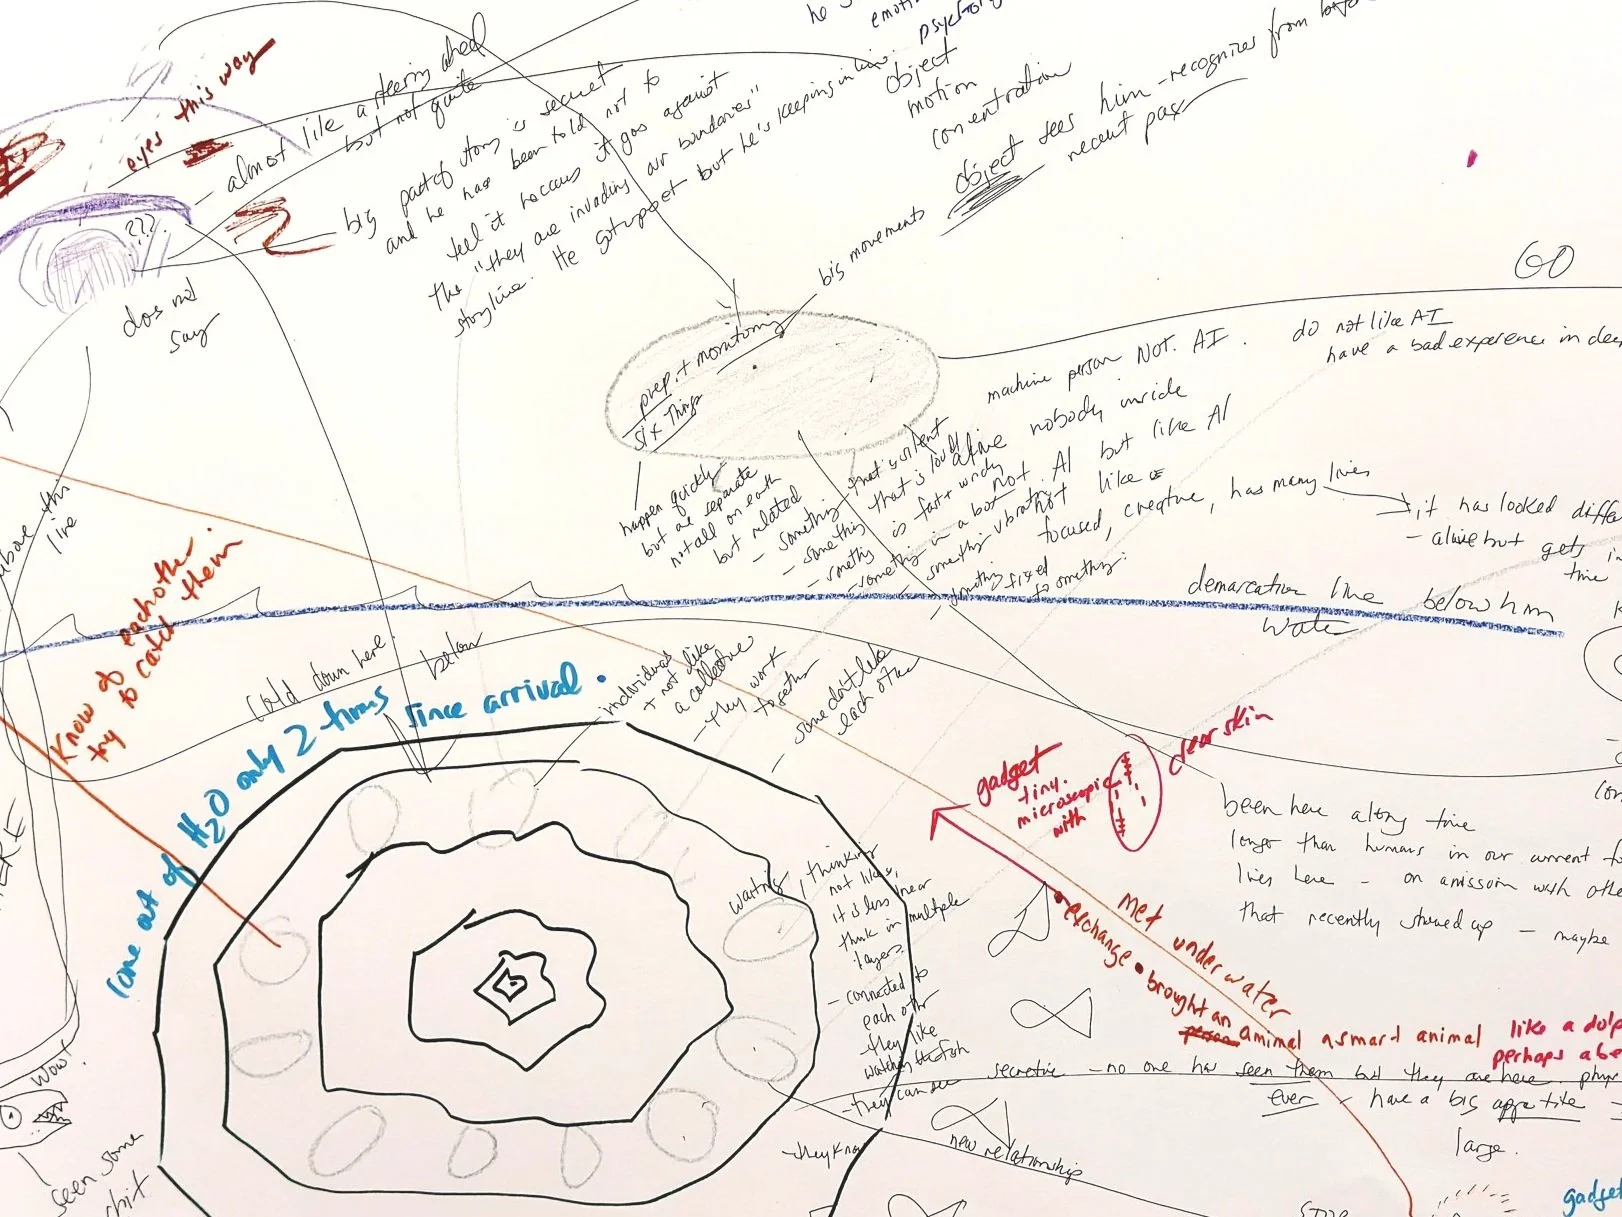 he
emoti
psycholog
object
motion
concentration
object sees him - recognizes from
recent past
eyes this way
almost like a steering wheel
but not quite
big part of story is secret
and he has been told not to
tell it because it goes against
the "they are invading our boundaries"
storyline. He got upset but he's keeping in line.
???
does not
say
big movements
GO
prep. + monitoring
six things
happen quickly
but are separate
not all on earth
but related
- something that is silent
- something that is loud
- something is fast + windy
- something in a box
- something vibrating
- something fixed
to something.
machine person NOT AI.
alive nobody inside
not AI but like AI
not like us
focused, creative, has many lives
it has looked diffe
- alive but gets in
time
do not like AI
have a bad experience in dee
above this
line
know of eachother
try to catch them
demarcation line below him
water
cold down here.
below
come out of H2O only 2 times since arrival.
individuals
+ not like
a collective
- they work
together
- some don't like
each other
gadget
tiny.
microscopic
with
rear skin
been here along time
longer than humans in our current fo
lives here - on a mission with othe
that recently showed up - maybe
waiting
thinking
not like us,
it is less linear
think in multiple
layers.
- connected to
each other
- they like
watching the fish
- they can see
- they know
met under water
exchange
brought an
animal a smart animal like a dolp
perhaps a be
secretive - no one has seen them but they are here.
ever - have a big appetite -
large.
new relationship
woot
seen some
shit
gadget